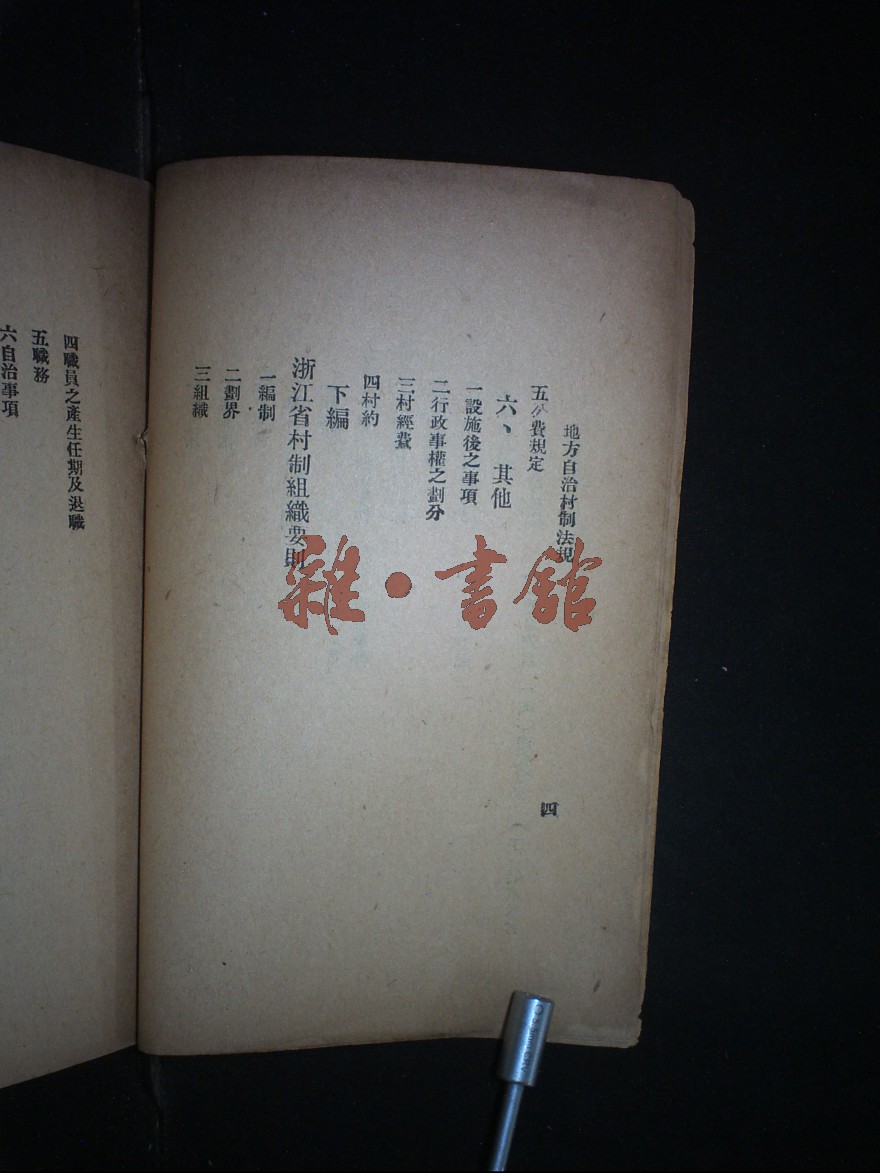 地方自治村制法規
五公費規定
六、其他
一設施後之事項
二行政事權之劃分
三村經費
四村約
下編
浙江省村制組織要則
一編制
二劃界
三組織
四
四職員之產生任期及退職
五職務
六自治事項
雜·書館